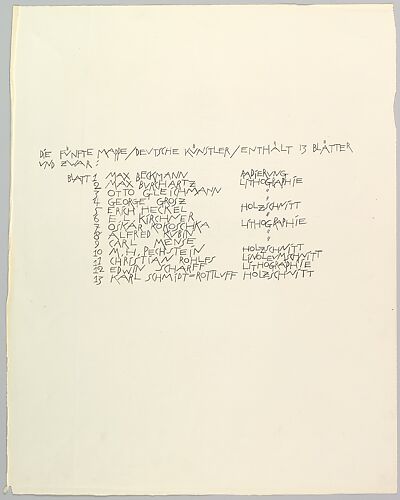 DIE FÜNFTE MAPPE/DEUTSCHE KÜNSTLER/ENTHÄLT 13 BLÄTTER
UND ZWAR:
BLATT 1 MAX BECKMANN RADIERUNG
2 MAX BURCHARTZ LITHOGRAPHIE
3 OTTO GLEICHMANN "
4 GEORGE GROSZ "
5 ERICH HECKEL HOLZSCHNITT
6 E. L. KIRCHNER "
7 OSKAR KOKOSCHKA LITHOGRAPHIE
8 ALFRED KUBIN "
9 CARL MENSE "
10 M. H. PECHSTEIN HOLZSCHNITT
11 CHRISTIAN ROHLFS LINOLEUMSCHNITT
12 EDWIN SCHARFF LITHOGRAPHIE
13 KARL SCHMIDT=ROTTLUFF HOLZSCHNITT